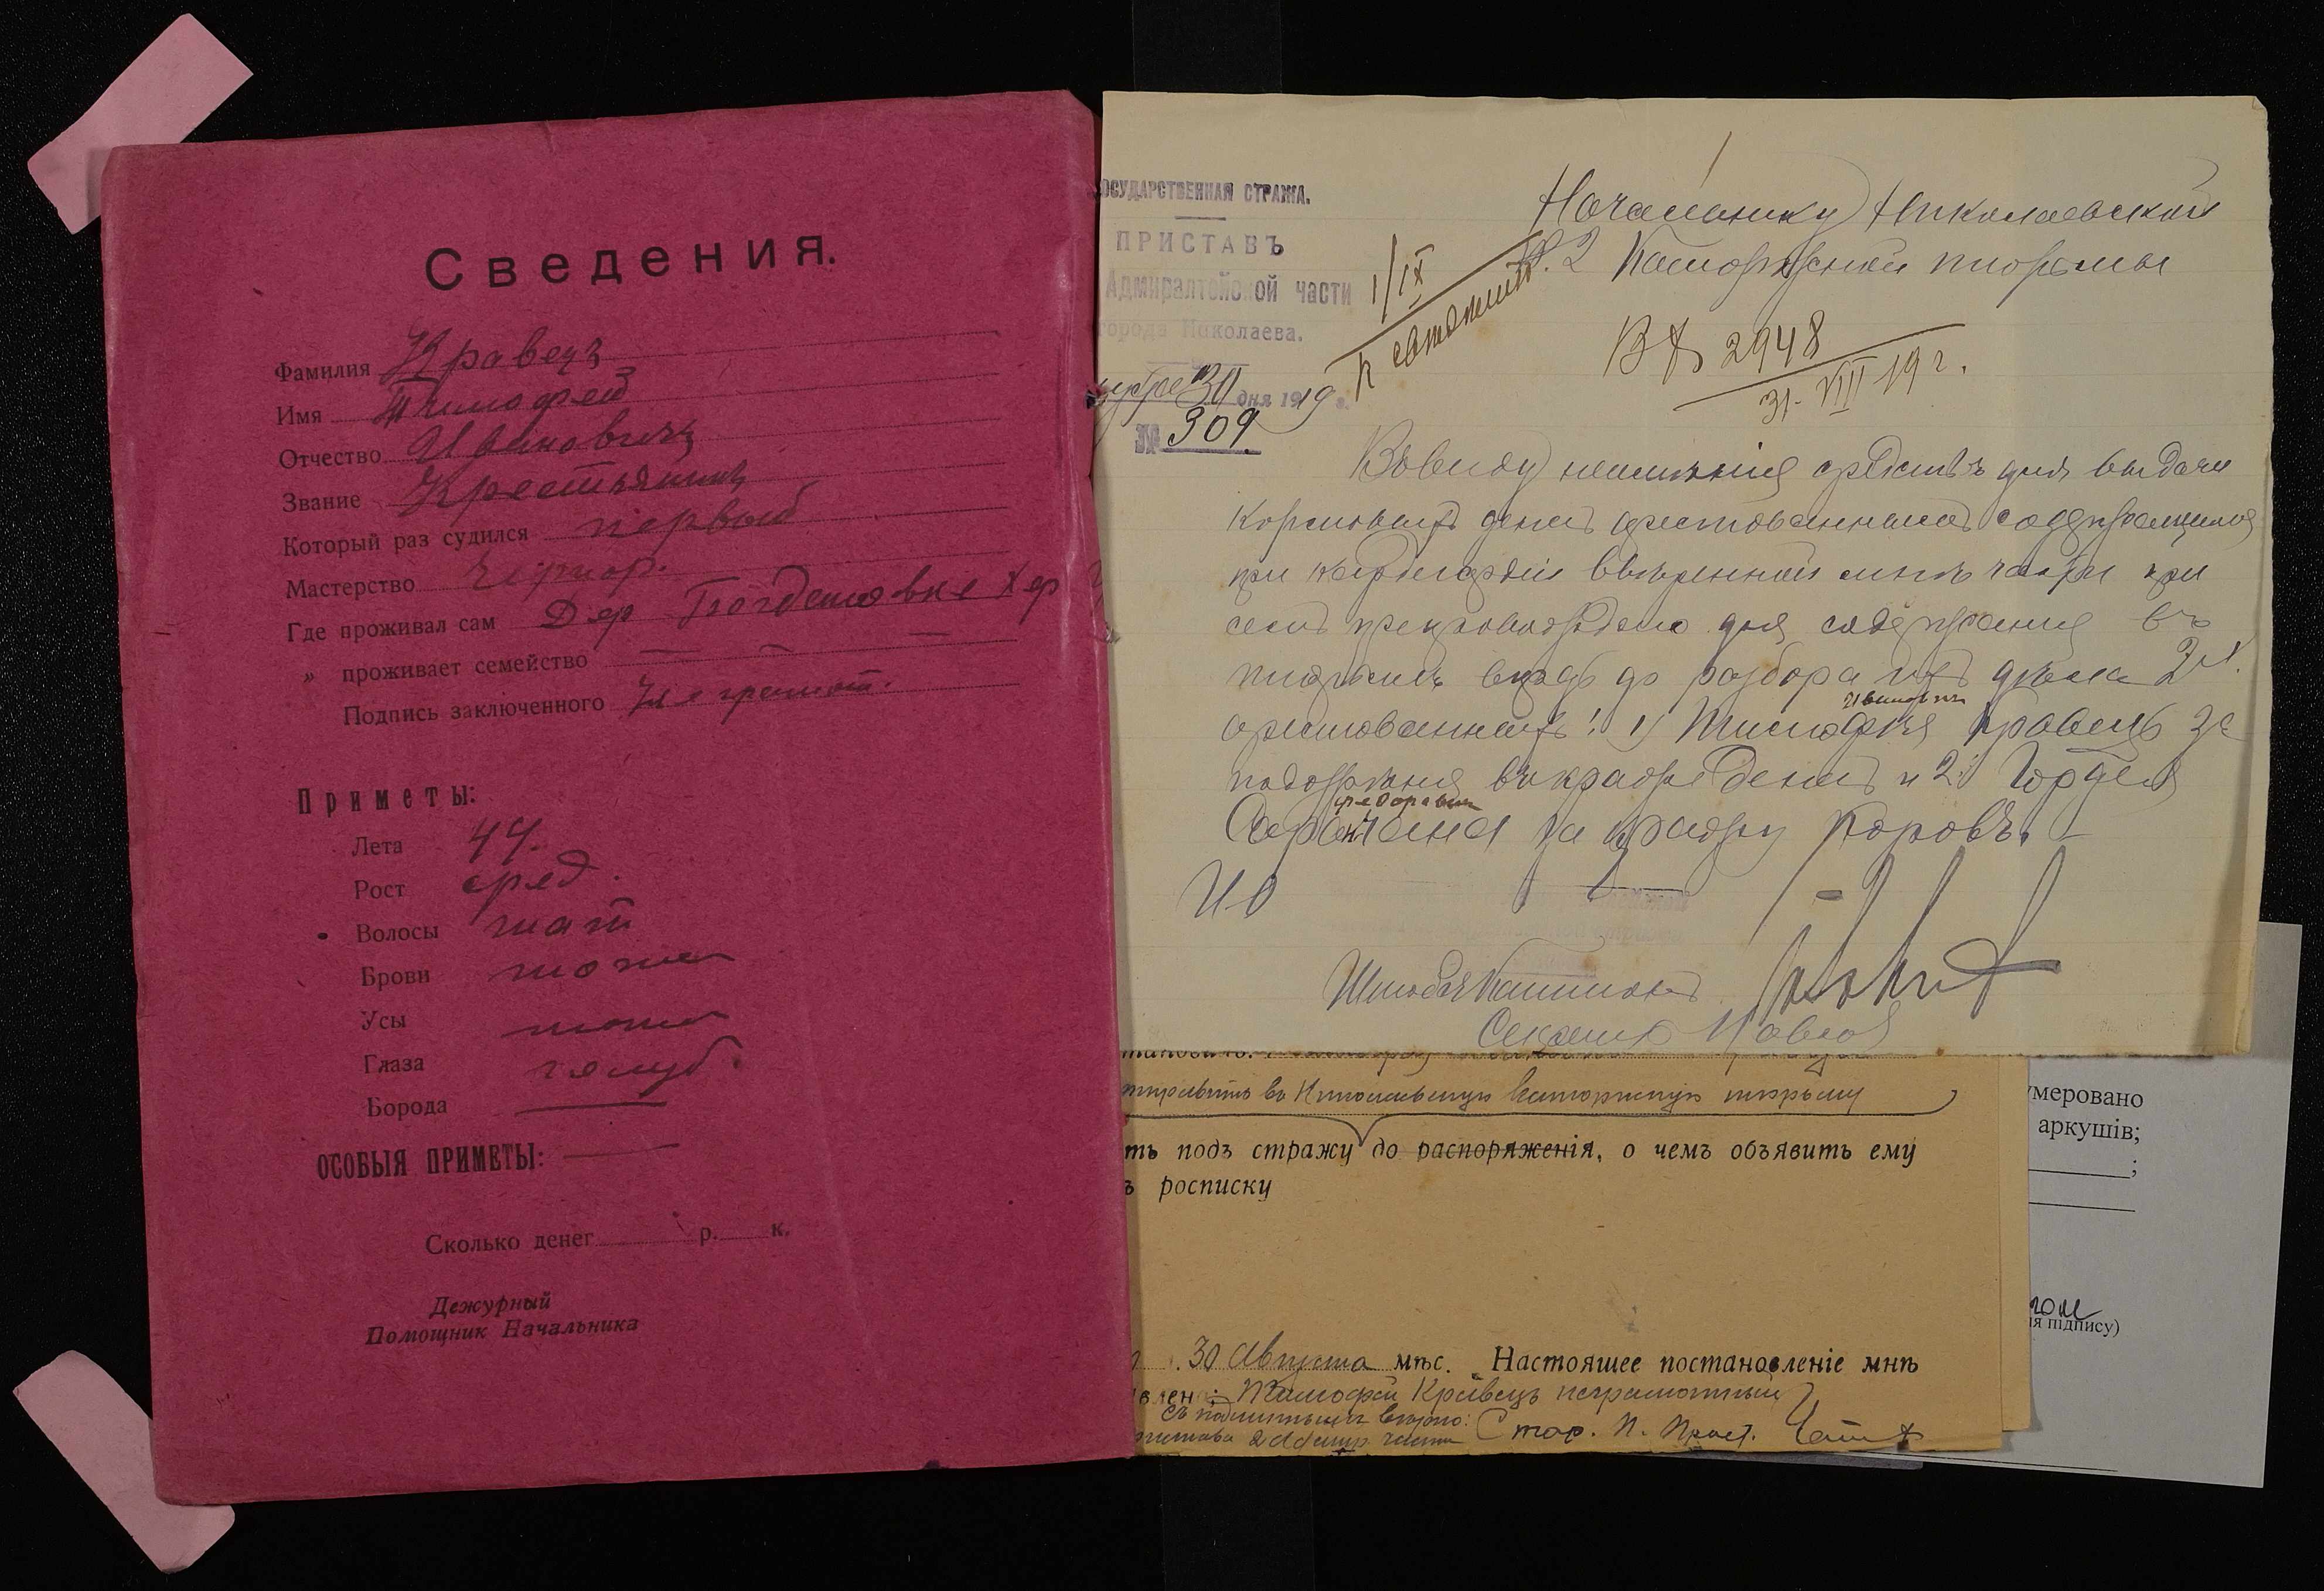 Сведения.
Фамилия Кравецъ
Имя Тимофей
Отчество Ивановичъ
Звание Крестьянинъ
Который раз судился первый
Мастерство
Где проживал сам Дер Богдановке Хер
„ проживает семейство — — —
Подпись заключенного Не грамот.
Приметы:
Лета 44.
Рост сред.
Волосы шат
Брови тоже
Усы тоже
Глаза голуб.
Борода —
ОСОБЫЯ ПРИМЕТЫ: —
Сколько денег р. к.
Дежурный
Помощник Начальника
ОСУДАРСТВЕННАЯ СТРАЖА.
ПРИСТАВЪ
Адмиралтейской части
города Николаева.
30 дня 1919 г.
№ 309
1/IX
Начальнику Николаевской
Каторжной тюрьмы
Вх 2948
31-VIII 19 г.
Ввиду неимения средствъ для выдачи
кормовыхъ денегъ арестованнымъ содержащимся
при кардегардии вверенной мнѣ части при
семъ препровождаю для содержания въ
тюрьмѣ впредь до разбора ихъ дѣла 2х
арестованныхъ: 1) Тимофѣя Ивановъ Кравецъ за
подозрѣния въ кражѣ денег и 2) Гордея
Федоровъ за кражу коровъ. —
ИО
Секрет
отправить въ Николаевскую каторжную тюрьму
ть подъ стражу до распоряженія, о чемъ объявить ему
ъ росписку
30 Августа мѣс. Настоящее постановленіе мнѣ
влено: Тимофей Кравецъ неграмотный
съ подлиннымъ вѣрно:
2 Адмир. части Стар. П. Прист.
умеровано
аркушів;
;
я підпису)